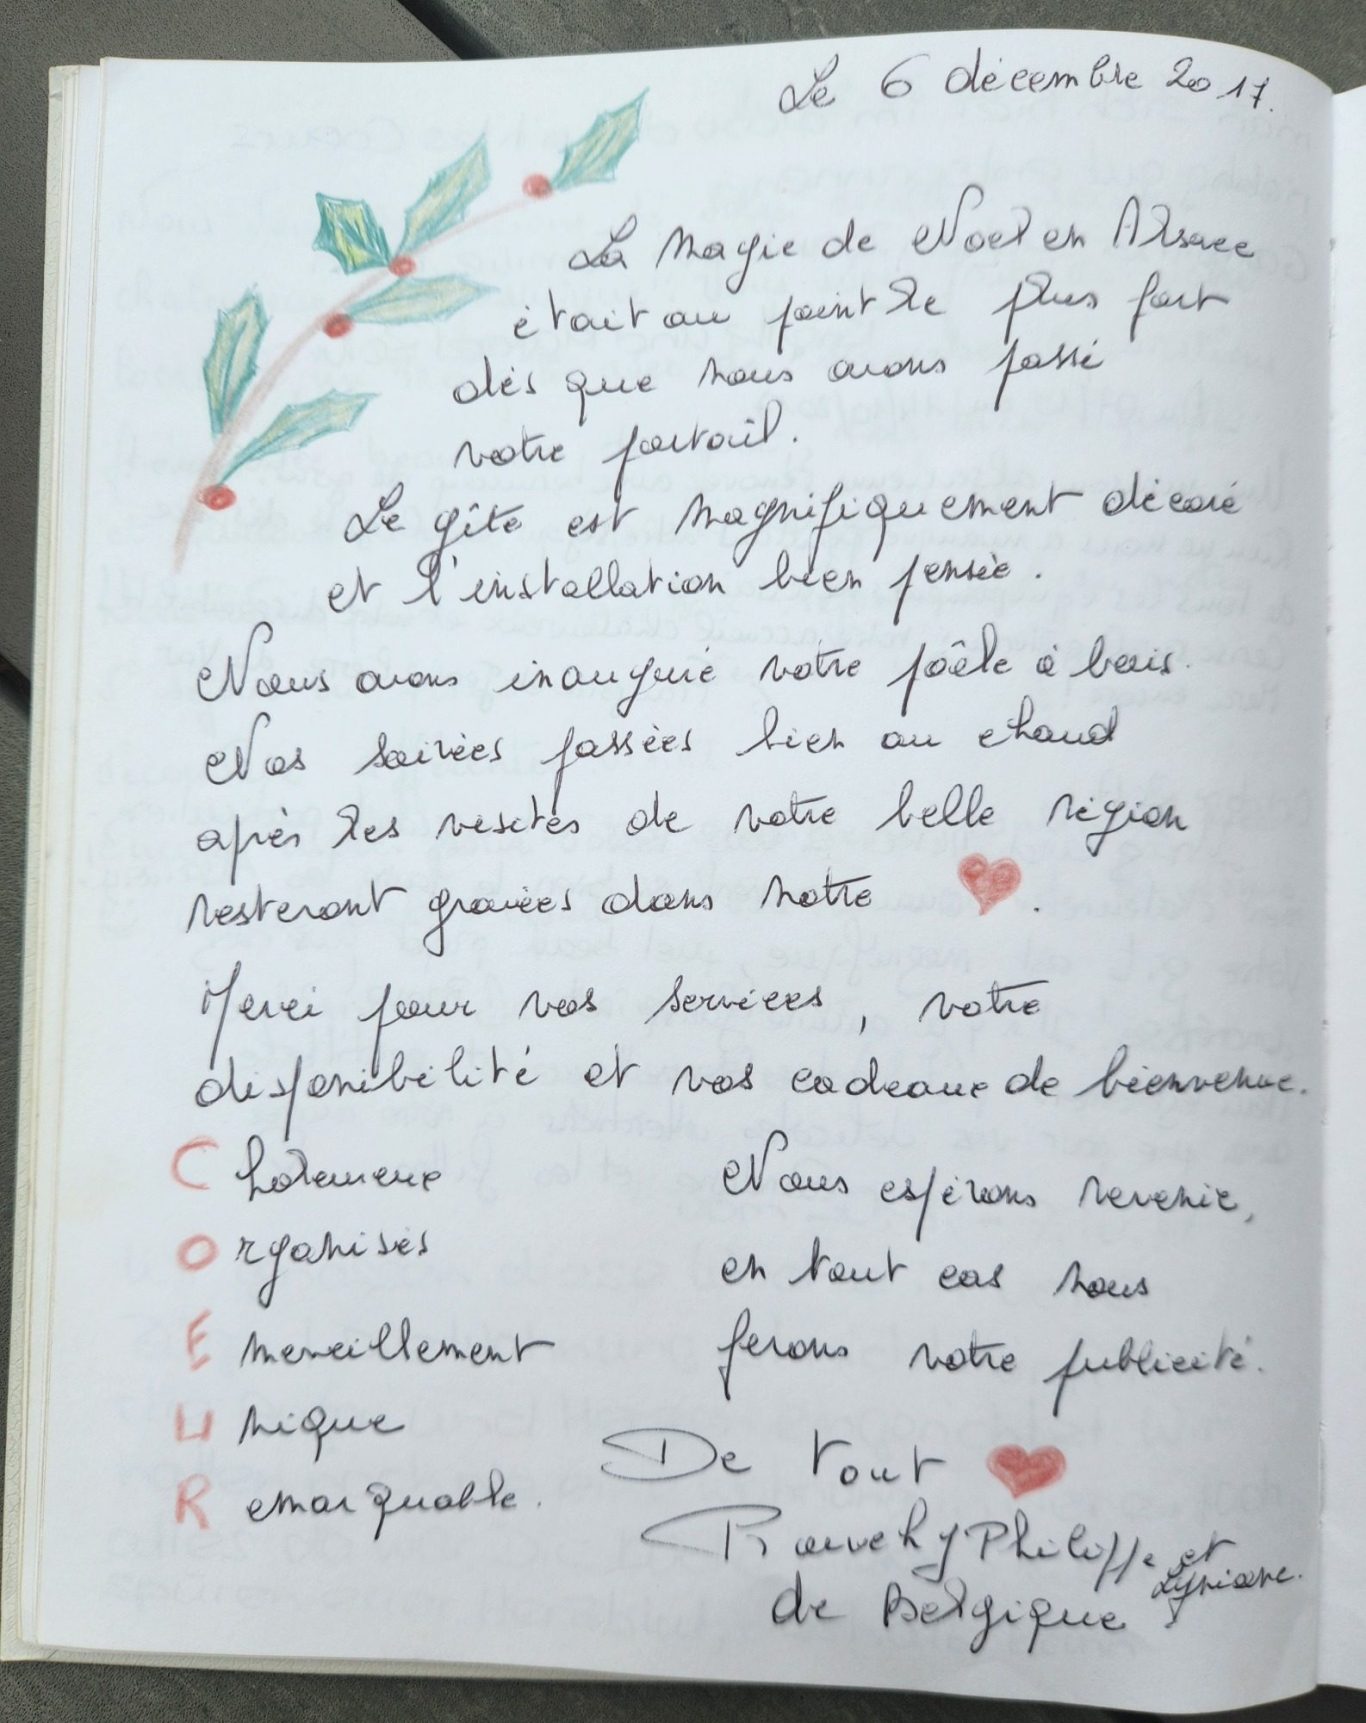 Le 6 décembre 2017.
La Magie de Noël en Alsace
était au point le plus fort
dès que nous avons passé
votre portail.
Le gîte est magnifiquement décoré
et l'installation bien pensée.
Nous avons inauguré votre poêle à bois.
Nos soirées passées bien au chaud
après les visites de votre belle région
resteront gravées dans notre ❤.
Merci pour vos services, votre
disponibilité et vos cadeaux de bienvenue.
Chaleureux
Organisés
Emerveillement
Unique
Remarquable.
Nous espérons revenir,
en tout cas nous
ferons votre publicité.
De tout ❤
Philippe et
de Belgique